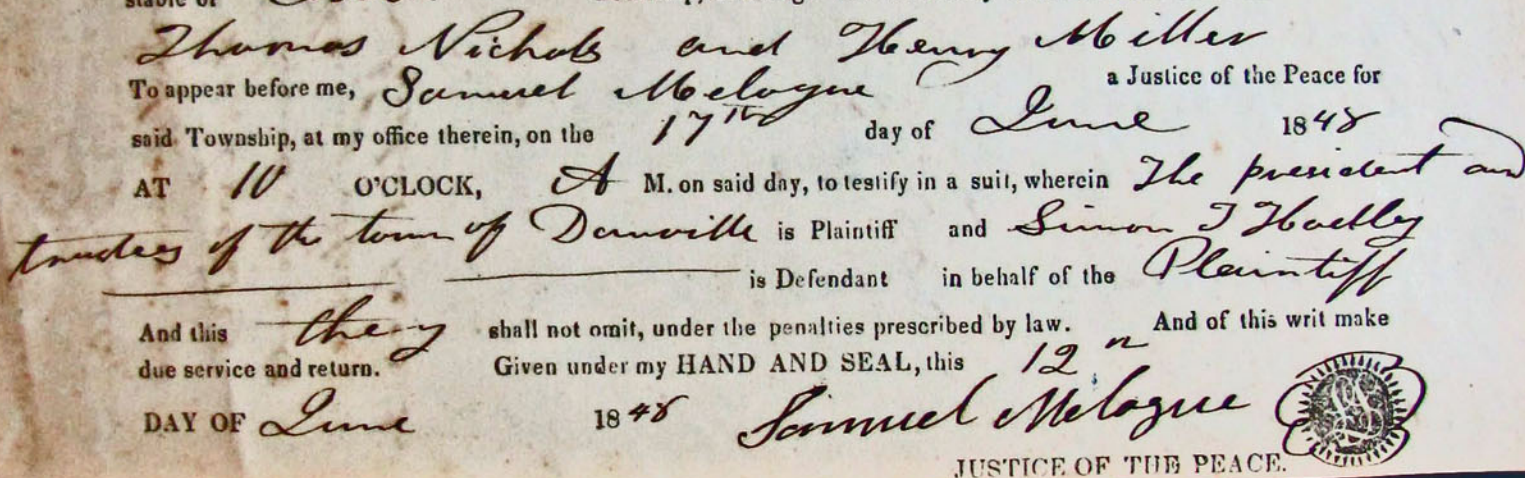 Thomas Nichols and Henry Miller
To appear before me, Samuel Melogue a Justice of the Peace for
said Township, at my office therein, on the 17th day of June 1848
AT 10 O'CLOCK, A M. on said day, to testify in a suit, wherein The president and
trustees of the town of Danville is Plaintiff and Simon T Hadley
is Defendant in behalf of the Plaintiff
And this they shall not omit, under the penalties prescribed by law. And of this writ make
due service and return. Given under my HAND AND SEAL, this 12
DAY OF June 1848 Samuel Melogue
JUSTICE OF THE PEACE.